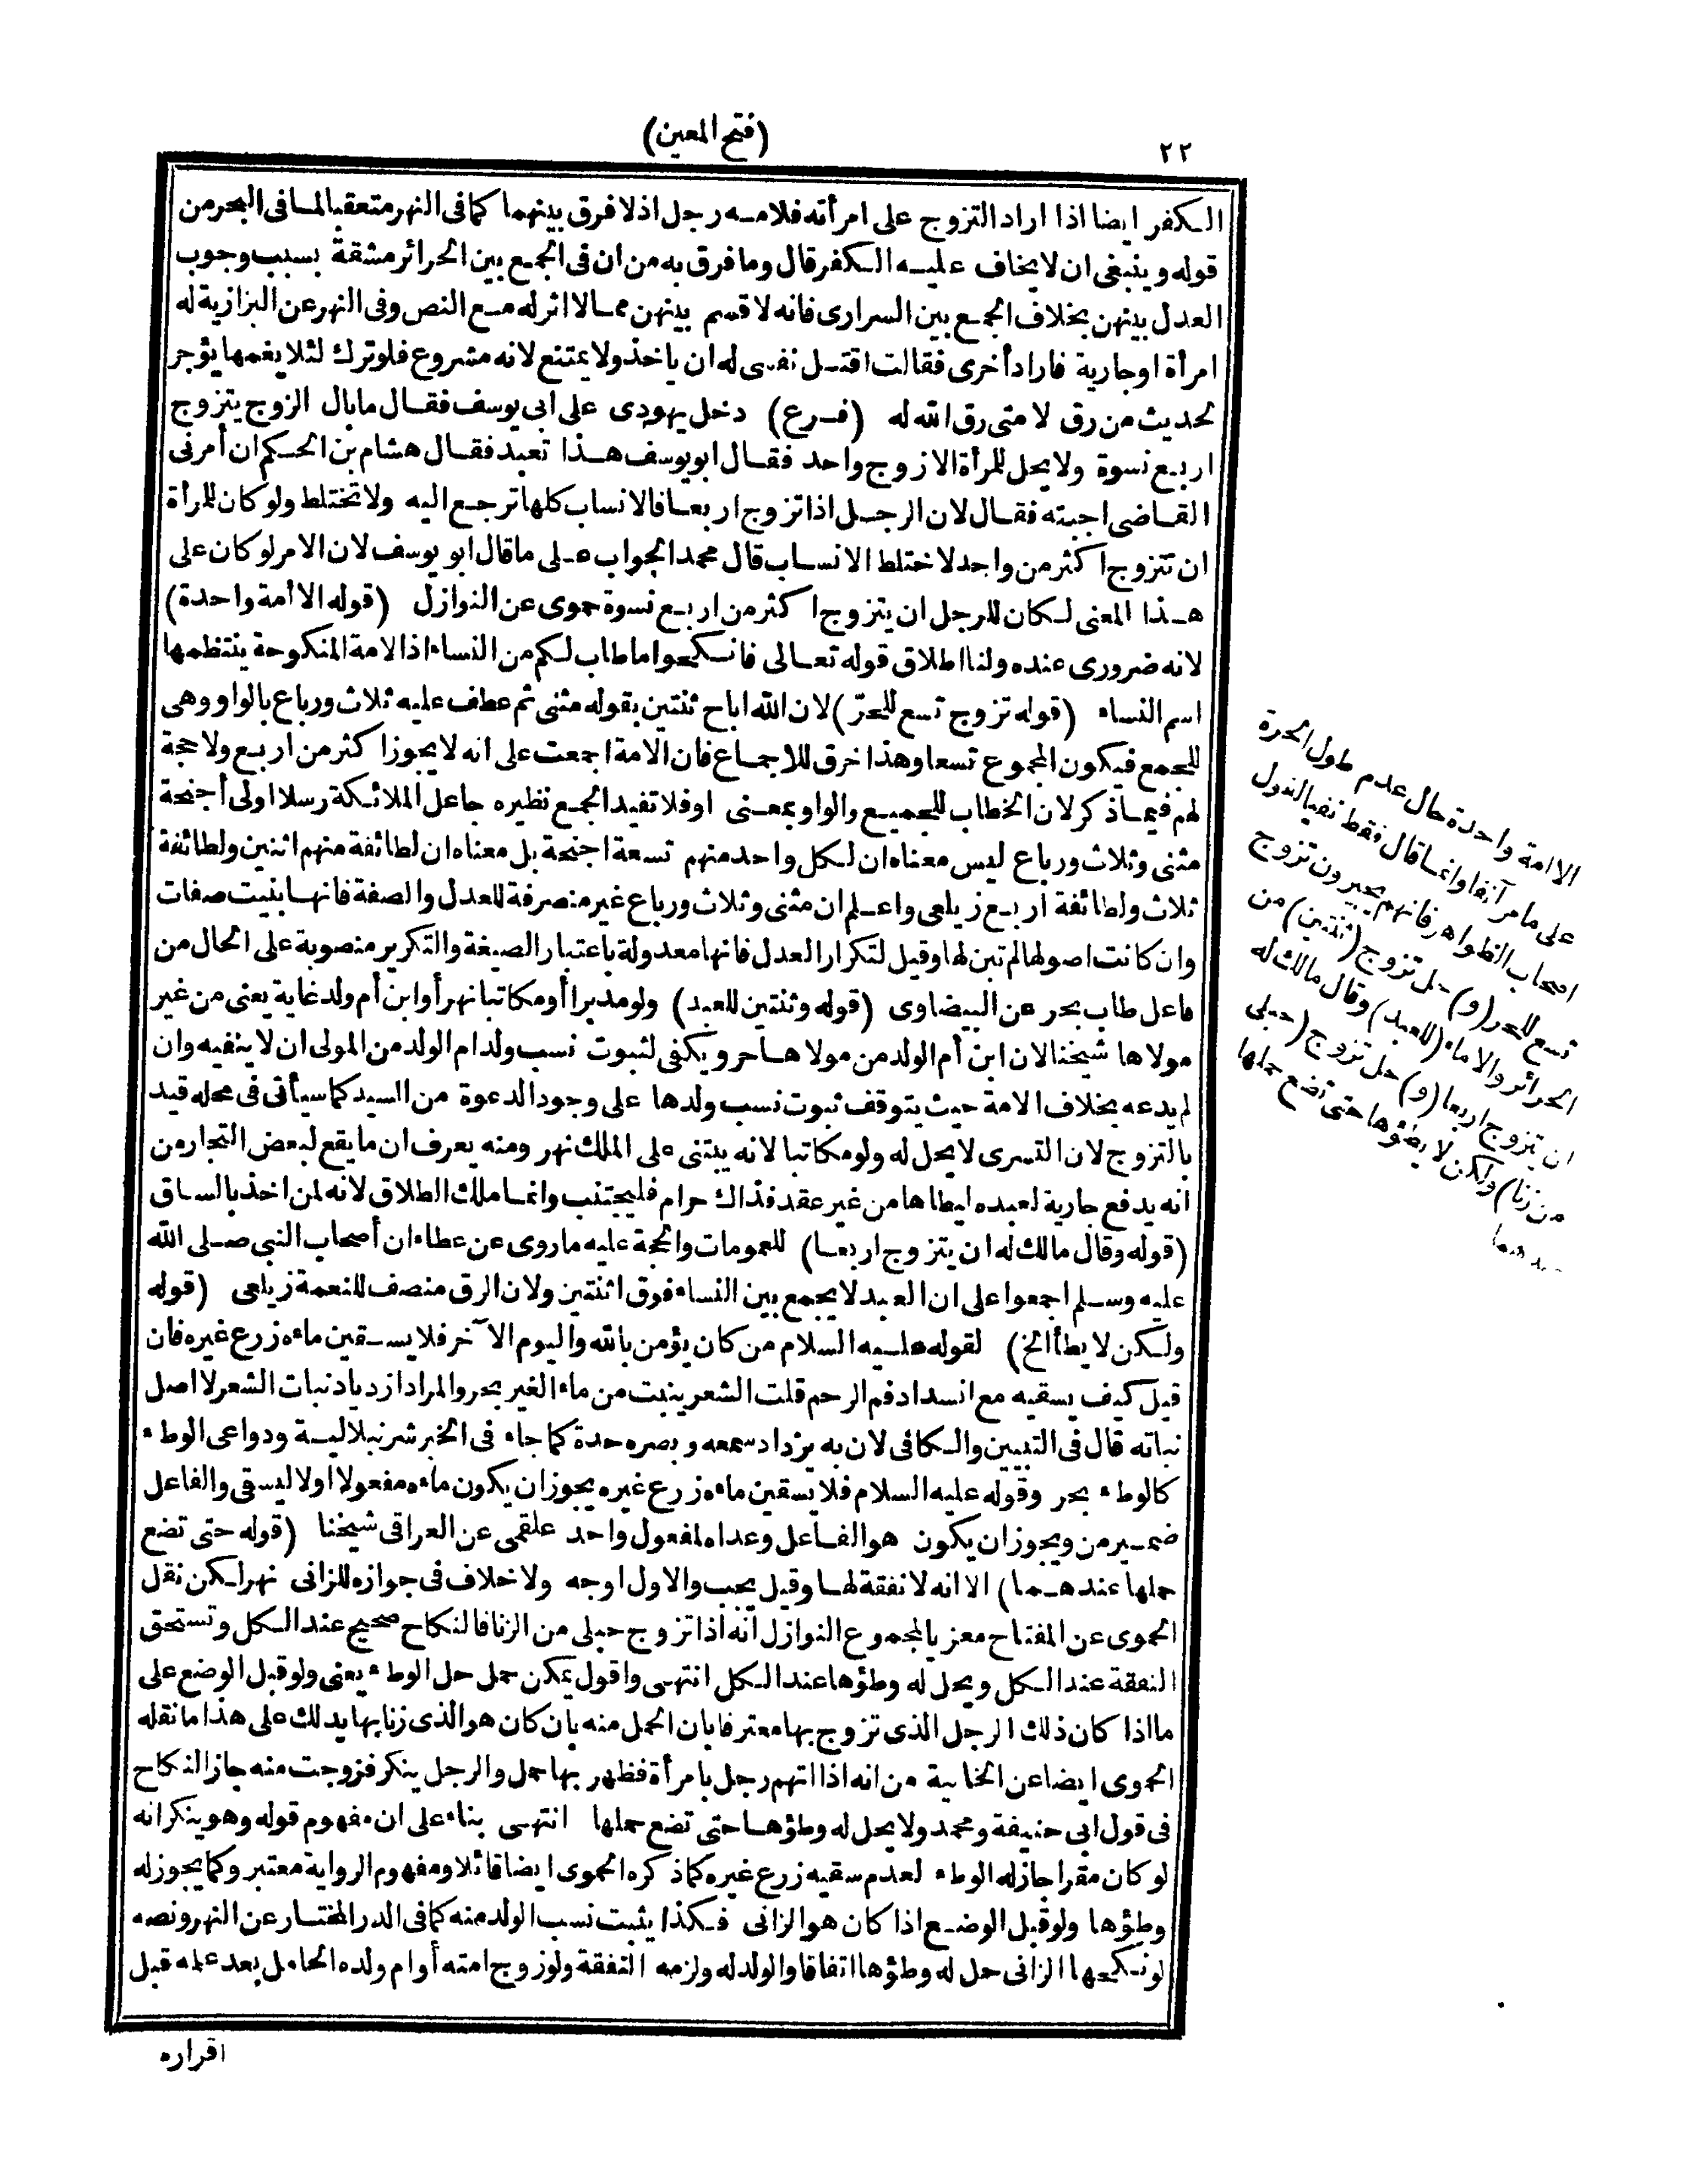 ٢٢
(فتح المعين)
الكفر ايضا اذا اراد التزوج على امرأته فلامه رجل اذ لا فرق بينهما كما فى النهر متعقبا لما فى البحر من
قوله وينبغى ان لا يخاف عليه الكفر قال وما فرق به من ان فى الجمع بين الحرائر مشقة بسبب وجوب
العدل بينهن بخلاف الجمع بين السرارى فانه لا قسم بينهن مما لا اثر له مع النص وفى النهر عن البزازية له
امرأة او جارية فاراد أخرى فقالت اقتل نفسى له ان ياخذ ولا يمتنع لانه مشروع فلو ترك لئلا يغمها يؤجر
لحديث من رق لامتى رق الله له (فرع) دخل يهودى على ابى يوسف فقال ما بال الزوج يتزوج
اربع نسوة ولا يحل للمرأة الا زوج واحد فقال ابو يوسف هذا تعبد فقال هشام بن الحكم ان أمرنى
القاضى اجبته فقال لان الرجل اذا تزوج اربعا فالانساب كلها ترجع اليه ولا تختلط ولو كان للمرأة
ان تتزوج اكثر من واحد لاختلط الانساب قال محمد الجواب على ما قال ابو يوسف لان الامر لو كان على
هذا المعنى لكان للرجل ان يتزوج اكثر من اربع نسوة حموى عن النوازل (قوله الا أمة واحدة)
لانه ضرورى عنده ولنا اطلاق قوله تعالى فانكحوا ما طاب لكم من النساء اذ الامة المنكوحة ينتظمها
اسم النساء (قوله تزوج تسع للحرّ) لان الله اباح ثنتين بقوله مثنى ثم عطف عليه ثلاث ورباع بالواو وهى
للجمع فيكون المجموع تسعا وهذا خرق للاجماع فان الامة اجمعت على انه لا يجوز اكثر من اربع ولا حجة
لهم فيما ذكر لان الخطاب للجميع والواو بمعنى او فلا تفيد الجمع نظيره جاعل الملائكة رسلا اولى أجنحة
مثنى وثلاث ورباع ليس معناه ان لكل واحد منهم تسعة اجنحة بل معناه ان لطائفة منهم اثنين ولطائفة
ثلاث ولطائفة اربع زيلعى واعلم ان مثنى وثلاث ورباع غير منصرفة للعدل والصفة فانها بنيت صفات
وان كانت اصولها لم تبن لها وقيل لتكرار العدل فانها معدولة باعتبار الصيغة والتكرير منصوبة على الحال من
فاعل طاب بحر عن البيضاوى (قوله وثنتين للعبد) ولو مدبرا أو مكاتبا نهر أو ابن أم ولد غاية يعنى من غير
مولاها شيخنا لان ابن أم الولد من مولاها حر ويكفى لثبوت نسب ولد ام الولد من المولى ان لا ينفيه وان
لم يدعه بخلاف الامة حيث يتوقف ثبوت نسب ولدها على وجود الدعوة من السيد كما سيأتى فى محله قيد
بالتزوج لان التسرى لا يحل له ولو مكاتبا لانه يبتنى على الملك نهر ومنه يعرف ان ما يقع لبعض التجار من
انه يدفع جارية لعبده ليطاها من غير عقد فذاك حرام فليجتنب وانما ملك الطلاق لانه لمن اخذ بالساق
(قوله وقال مالك له ان يتزوج اربعا) للعمومات والحجة عليه ما روى عن عطاء ان أصحاب النبى صلى الله
عليه وسلم اجمعوا على ان العبد لا يجمع بين النساء فوق اثنتين ولان الرق منصف للنعمة زيلعى (قوله
ولكن لا يطأ الخ) لقوله عليه السلام من كان يؤمن بالله واليوم الآخر فلا يسقين ماءه زرع غيره فان
قيل كيف يسقيه مع انسداد فم الرحم قلت الشعر ينبت من ماء الغير بحر والمراد ازدياد نبات الشعر لا اصل
نباته قال فى التبيين والكافى لان به يزداد سمعه وبصره حدة كما جاء فى الخبر شرنبلالية ودواعى الوطء
كالوطء بحر وقوله عليه السلام فلا يسقين ماءه زرع غيره يجوز ان يكون ماءه مفعولا اولا ليسقى والفاعل
ضمير من ويجوز ان يكون هو الفاعل وعداه لمفعول واحد علقمى عن العراقى شيخنا (قوله حتى تضع
حملها عندهما) الا انه لا نفقة لها وقيل يجب والاول اوجه ولا خلاف فى جوازه للزانى نهر لكن نقل
الحموى عن المفتاح معزيا لمجموع النوازل أنه اذا تزوج حبلى من الزنا فالنكاح صحيح عند الكل وتستحق
النفقة عند الكل ويحل له وطؤها عند الكل انتهى واقول يمكن حمل حل الوطء يعنى ولو قبل الوضع على
ما اذا كان ذلك الرجل الذى تزوج بها معترفا بان الحمل منه بان كان هو الذى زنا بها يدلك على هذا ما نقله
الحموى ايضا عن الخانية من انه اذا اتهم رجل بامرأة فظهر بها حمل والرجل ينكر فزوجت منه جاز النكاح
فى قول ابى حنيفة ومحمد ولا يحل له وطؤها حتى تضع حملها انتهى بناء على ان مفهوم قوله وهو ينكر انه
لو كان مقرا جاز له الوطء لعدم سقيه زرع غيره كما ذكره الحموى ايضا قائلا ومفهوم الرواية معتبر وكما يجوز له
وطؤها ولو قبل الوضع اذا كان هو الزانى فكذا يثبت نسب الولد منه كما فى الدر المختار عن النهر ونصه
لو نكحها الزانى حل له وطؤها اتفاقا والولد له ولزمه النفقة ولو زوج امته أو ام ولده الحامل بعد علمه قبل
اقراره
الا امة واحدة حال عدم طول الحرة
على ما مر آنفا وانما قال فقط نفيا لقول
اصحاب الظواهر فانهم يجيزون تزوج
تسع للحر (و) حل تزوج (ثنتين) من
الحرائر والاماء (للعبد) وقال مالك له
ان يتزوج اربعا (و) حل تزوج (حبلى
من زنا) ولكن لا يطؤها حتى تضع حملها